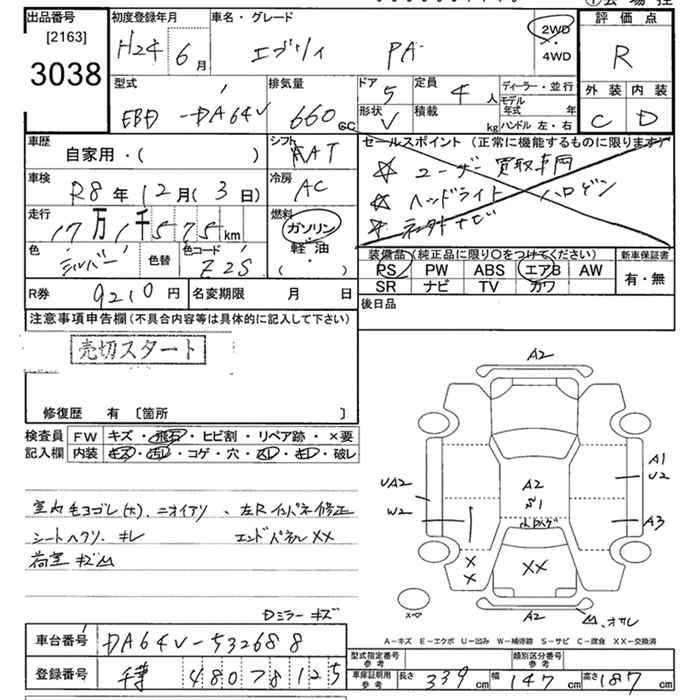 出品番号
[2163]
3038
初度登録年月
H24 6月
車名・グレード
エブリィ PA
2WD
・
4WD
評価点
R
外装 内装
C D
型式
EBD-DA64V
排気量
660 cc
ドア
5
定員
4人
形状
V
積載
kg
ディーラー・並行
モデル年式 年
ハンドル 左・右
車歴
自家用・( )
シフト
FAT
セールスポイント (正常に機能するものに限ります)
☆ ユーザー買取車両
☆ ヘッドライト ハロゲン
車検
R8年12月(3日)
冷房
AC
走行
17万1千575km
燃料
ガソリン
軽油
( ・ )
色
シルバー
色替
色コード
Z2S
装備品 (純正品に限り○をつけてください)
PS PW ABS エアB AW
SR ナビ TV カワ
新車保証書
有・無
R券 9210円
名変期限 月 日
後日品
注意事項申告欄 (不具合内容等は具体的に記入して下さい)
売切スタート
修復歴 有 〔箇所 〕
検査員
記入欄
FW キズ・飛石・ヒビ割・リペア跡・×要
内装 キズ・汚レ・コゲ・穴・スレ・キレ・破レ
室内毛ヨゴレ(大)、ニオイアリ、左Rインパネ修正
シートヘタリ、キレ エンドパネルXX
荷室 キズ凹
Dミラーキズ
A2
A2
S1
UA2
W2
A1
U2
A3
X
X
XX
スペア
A2
凹、オサレ
A-キズ E-エクボ U-凹み W-補修跡 S-サビ C-腐食 XX-交換済
車台番号 DA64V-532688
登録番号 480 781 25
型式指定番号
参考
類別区分番号
参考
車庫証明用
参考
長さ 339cm
幅 147cm
高さ 187cm